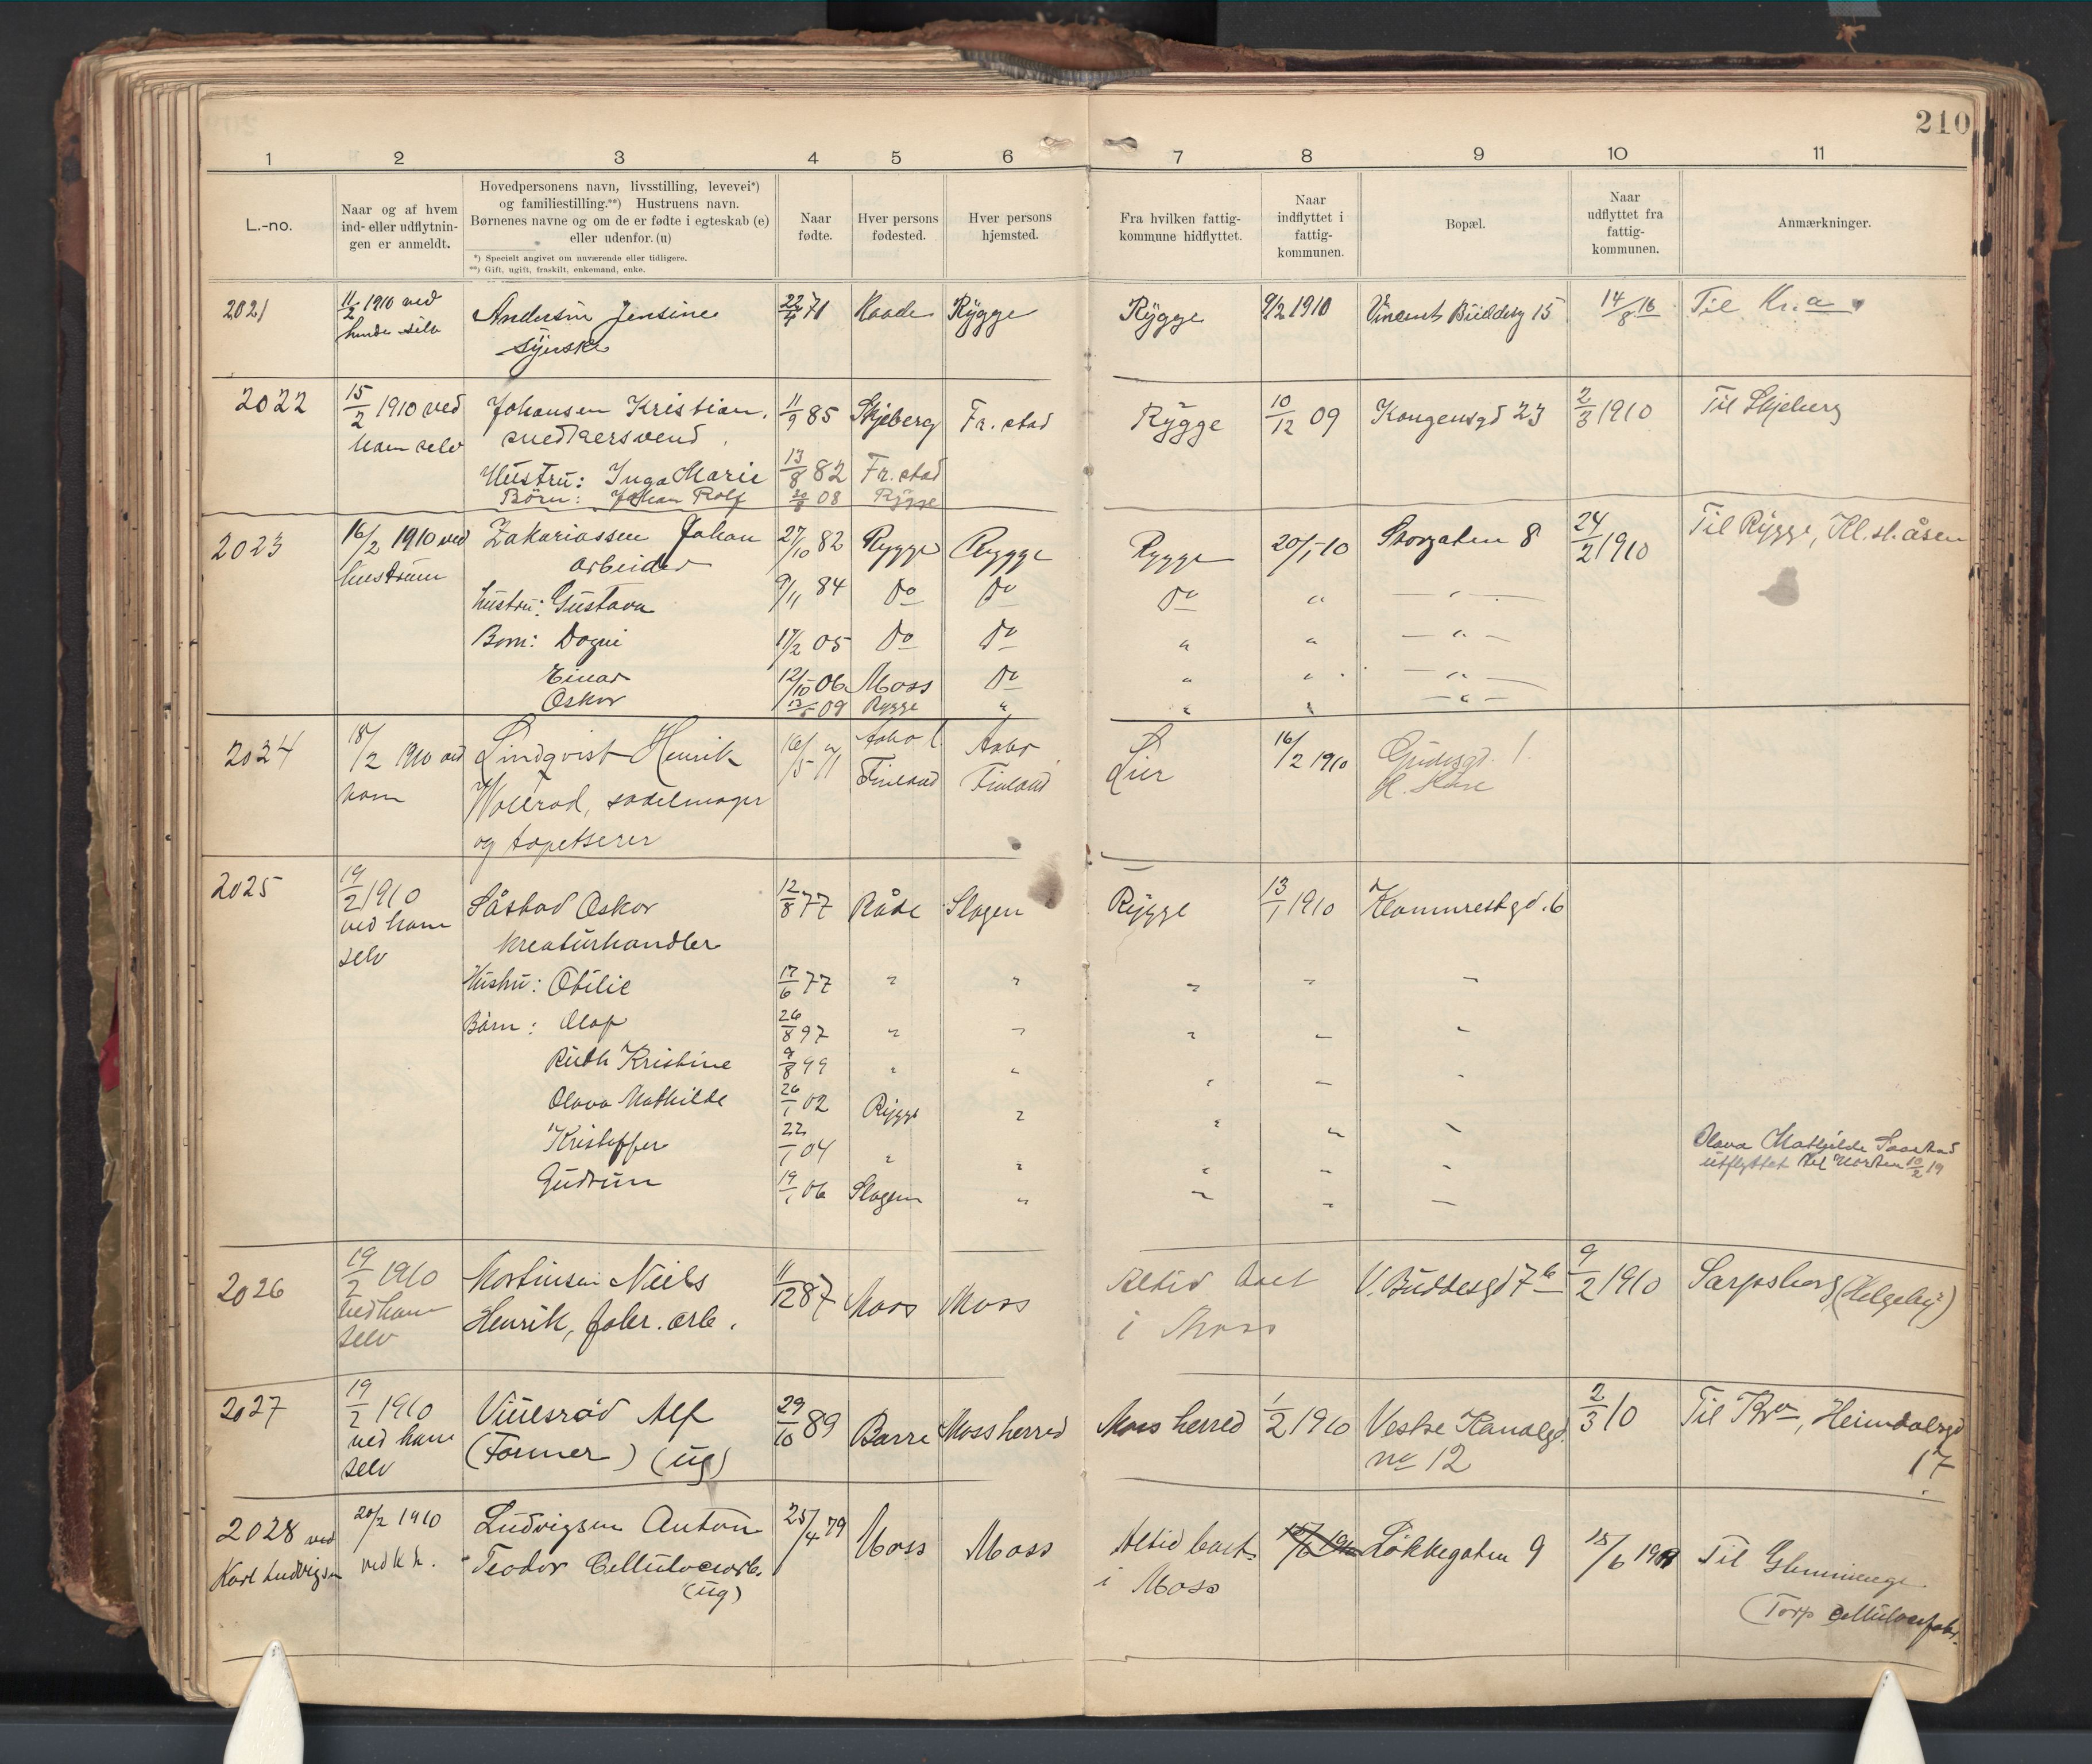 210
1 2 3 4 5 6 7 8 9 10 11
L.-no.
Naar og af hvem
ind- eller udflytnin-
gen er anmeldt.
Hovedpersonens navn, livsstilling, levevei*)
og familiestilling.**) Hustruens navn.
Børnenes navne og om de er fødte i egteskab (e)
eller udenfor. (u)
*) Specielt angivet om nuværende eller tidligere.
**) Gift, ugift, fraskilt, enkemand, enke.
Naar
fødte.
Hver persons
fødested.
Hver persons
hjemsted.
Fra hvilken fattig-
kommune hidflyttet.
Naar
indflyttet i
fattig-
kommunen.
Bopæl.
Naar
udflyttet fra
fattig-
kommunen.
Anmærkninger.
2021 11/2 1910 ved Andersen Jensine 22/4 71 Raade Rygge Rygge 9/2 1910 Vincent Buddesg 15 14/8 16 Til Kr.a
hende selv syerske
2022 15/2 1910 ved Johansen Kristian, 11/9 85 Skjeberg Fr. stad Rygge 10/12 09 Kongensgd 23 2/3 1910 Til Skjeberg
ham selv snedkersvend
Hustru: Inga Marie 13/8 82 Fr. stad
Börn: Johan Rolf 08 Rygge
2023 16/2 1910 ved Zakariassen Johan 27/10 82 Rygge Rygge Rygge 20/1 10 Storgaten 8 24/2 1910 Til Rygge, Kl. st. åsen
hustruen arbeider
hustru: Gustava 9/11 84 Do Do Do " — " —
Born: Dagni 17/2 05 Do Do " " — " —
Einar 12/10 06 Moss Do " " — " —
Oskar 09 Rygge " " " — " —
2024 18/2 1910 ved Lindqvist Henrik 16/5 71 Aabo Lier 16/2 1910 Gudesgd. 1
ham Wollrad, sadelmager Finland Finland
og tapetserer
2025 19/2 1910 Såstad Oskar 12/8 77 Råde Slagen Rygge 13/1 1910 Kammrestgd. 6
ved ham kreaturhandler
selv
Hustru: Otilie 17/6 77 " " " " "
Börn: Olaf 26/8 97 " " " " "
Ruth Kristine 9/8 99 " " " " "
Olava Mathilde 26/1 02 Rygge " " " "
Kristoffer 22/1 04 " " " " " Olava Mathilde Saastad
utflyttet til Horten 10/2 19
Gudrun 19/1 06 Slagen " " " "
2026 19/2 1910 Martinsen Niels 11/12 87 Moss Moss Altid boet V. Buddesgd 7b 9/2 1910 Sarpsborg (Helgeby)
ved ham Henrik, fabr. arb. i Moss
selv
2027 19/2 1910 Vinesrød Alf 29/10 89 Borre Moss herred Moss herred 1/2 1910 Vestre Kanalgd. 2/3 10 Til Kr.a, Heimdalsgd
ved ham (Former) (ug) no 12 17
selv
2028 ved 20/2 1910 Ludvigsen Anton 25/4 79 Moss Moss Altid boet Løkkegaten 9 15/6 190 Til Glemminge
Karl Ludvigsen ved k. h. Teodor Cellulosearb. i Moss
(ug) (Torp cellulosefabr.